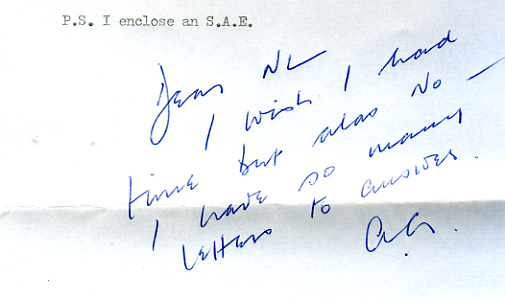 P.S. I enclose an S.A.E.
Dear NL
I wish I had
time but alas No —
I have so many
letters to answer.
A.G.